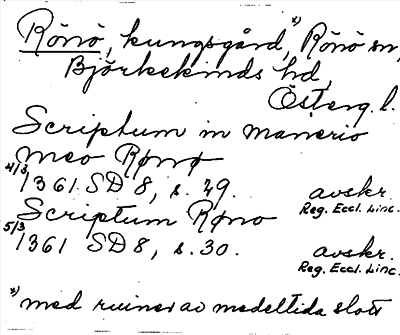 Rönö, kungsgård *), Rönö sn,
Björkekinds hd,
Österg. l.
Scriptum in manerio
meo Rønø
4/3 1361 SD 8, s. 29. avskr.
Reg. Eccl. Linc.
Scriptum Røno
5/3 1361 SD 8, s. 30. avskr.
Reg. Eccl. Linc.
*) med ruiner av medeltida slott